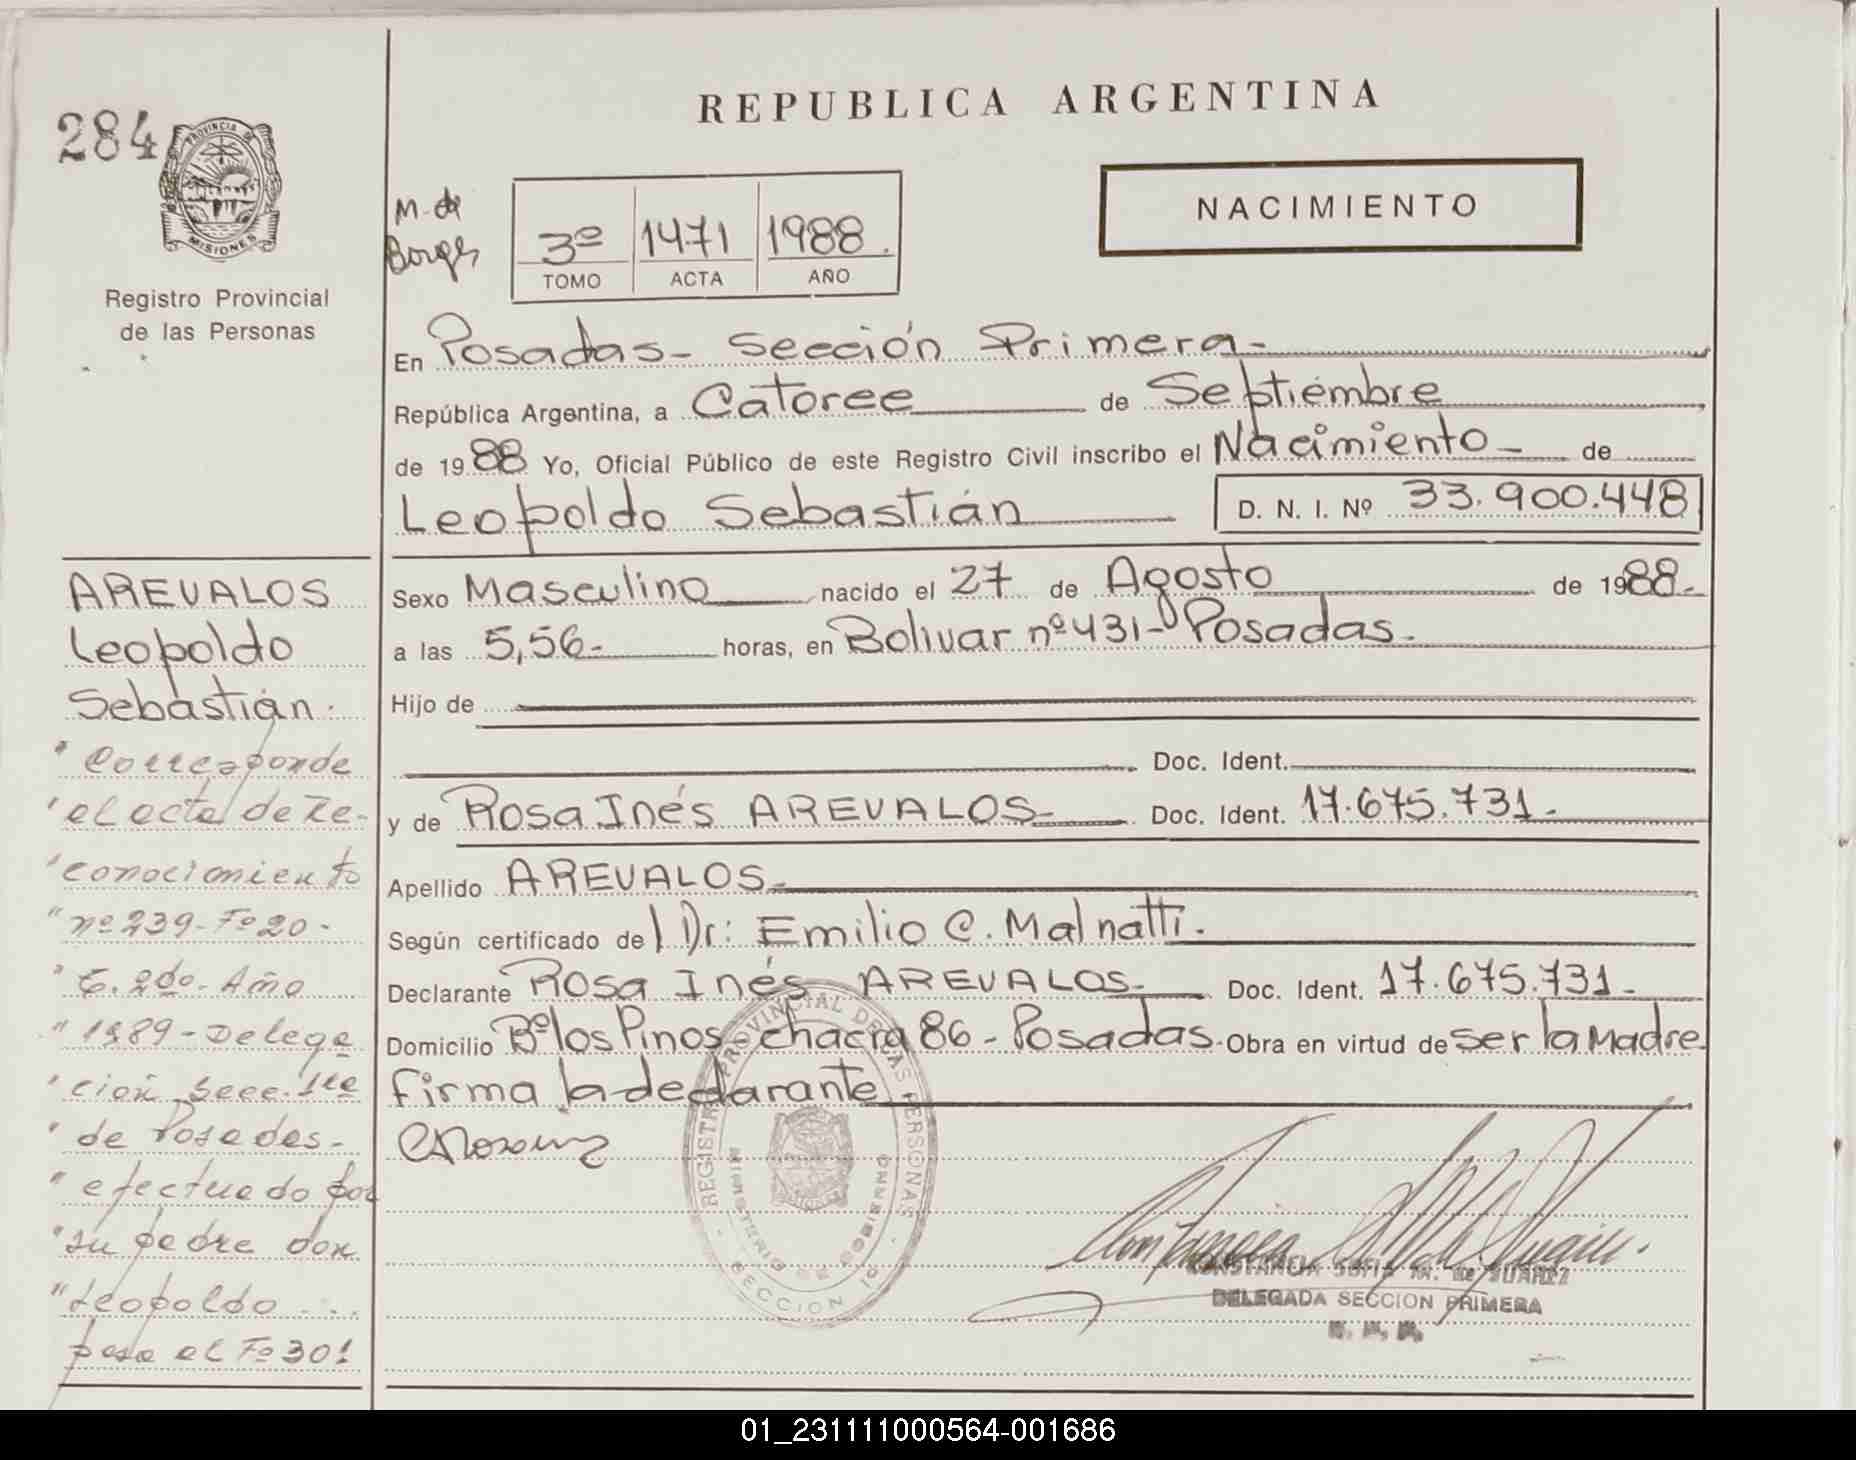 REPUBLICA ARGENTINA
284
PROVINCIA DE
MISIONES
Registro Provincial
de las Personas
M. de
Borges
3º 1471 1988.
TOMO ACTA AÑO
NACIMIENTO
En Posadas- Sección Primera-
República Argentina, a Catorce de Septiembre
de 1988 Yo, Oficial Público de este Registro Civil inscribo el Nacimiento de
Leopoldo Sebastián D. N. I. Nº 33.900.448
Sexo Masculino nacido el 27 de Agosto de 1988.-
a las 5,56- horas, en Bolivar nº 431- Posadas.
Hijo de
Doc. Ident.
y de Rosa Inés AREVALOS- Doc. Ident. 17.675.731-
Apellido AREVALOS-
Según certificado del Dr: Emilio C. Malnatti.
Declarante Rosa Inés AREVALOS- Doc. Ident. 17.675.731-
Domicilio Bº los Pinos chacra 86 - Posadas. Obra en virtud de ser la Madre
firma la declarante
AREVALOS
Leopoldo
Sebastián.
" Corresponde
" el acta de Re-
" conocimiento
" nº 239- Fº 20-
" T. 2do- Año
" 1989 - Delega
" ción Secc. 1ra
" de Posadas-
" efectuado por
" su padre don
" Leopoldo ....
pasa al Fº 301
REGISTRO PROVINCIAL DE LAS PERSONAS
MINISTERIO DE GOBIERNO
SECCION 1º
CONSTANCIA SOFIA M. de SUAREZ
DELEGADA SECCION PRIMERA
R. P. P.
01_231111000564-001686